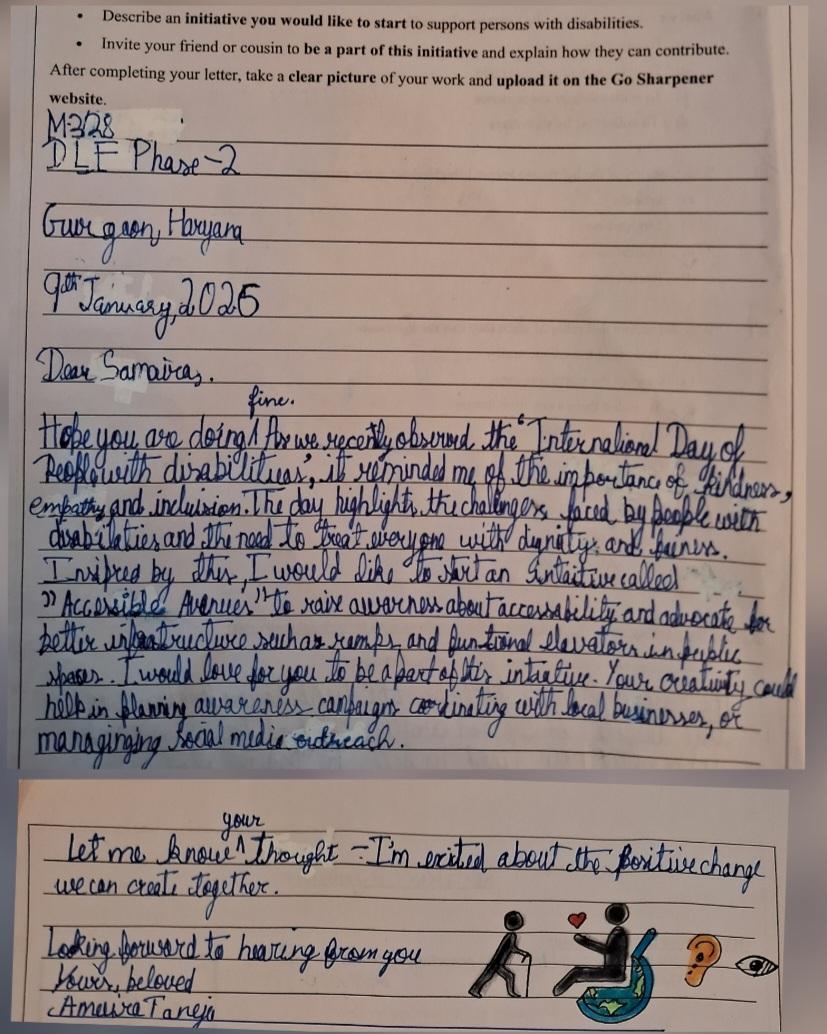 • Describe an initiative you would like to start to support persons with disabilities.
• Invite your friend or cousin to be a part of this initiative and explain how they can contribute.
After completing your letter, take a clear picture of your work and upload it on the Go Sharpener
website.
M-3/28
DLF Phase-2
Gurgaon, Haryana
9th January, 2025
Dear Samaira,.
fine.
Hope you are doing^ As we recently observed the "International Day of
People with disabilities", it reminded me of the importance of kindness,
empathy and inclusion. The day highlights the challenges faced by people with
disabilities and the need to treat everyone with dignity and fairness.
Insipred by this, I would like to start an intaitive called
"Accessible Avenues" to raise awarness about accessability and advocate for
better infrastructure such as ramps and funtional elavators in public
spaces. I would love for you to be a part of this intiative. Your creativity could
help in planning awareness campaigns coordinating with local businesses, or
managinging social media outreach.
your
Let me know ^ thought - I'm exited about the positive change
we can create together.
Looking forward to hearing from you
Yours, beloved
Ameira Taneja